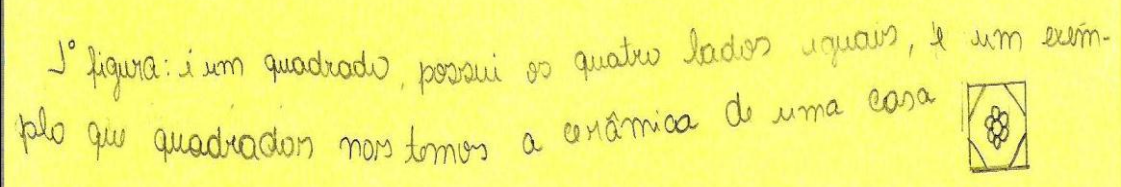 1º figura: é um quadrado, possui os quatro lados iguais, é um exem-
plo que quadrados nos temos a cerâmica de uma casa